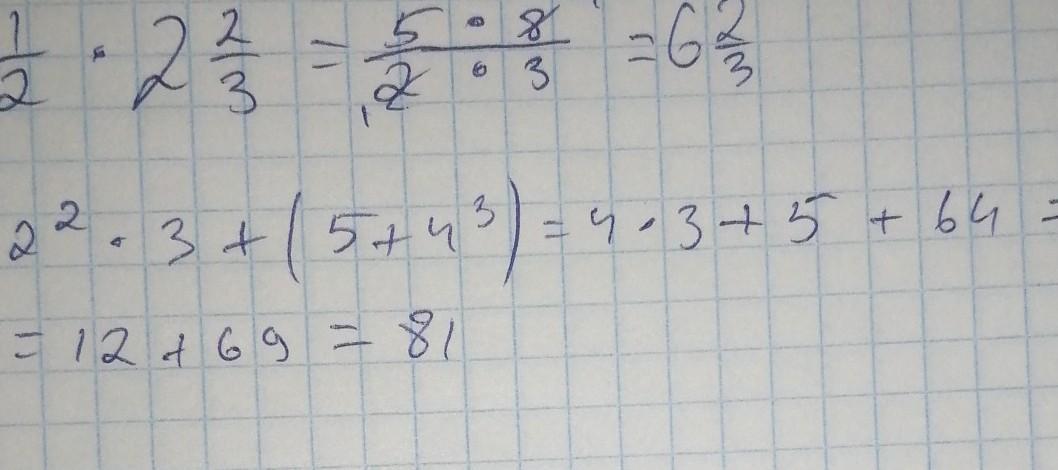 1/2 · 2 2/3 = 5 · 8 / 2 · 3 = 6 2/3
2² · 3 + (5 + 4³) = 4 · 3 + 5 + 64 =
= 12 + 69 = 81